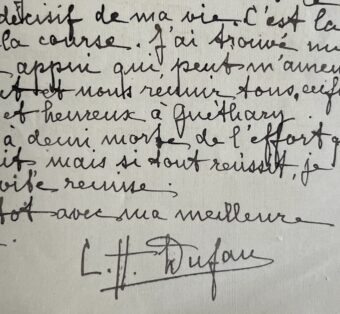 décisif de ma vie. C'est la
la course. J'ai trouvé
appui qui peut m'amen
et nous réunir tous, enf
et heureux à Guéthary
à demi morte de l'effort q
it mais si tout réussit, je
vite remise.
tot avec ma meilleure
C. H. Dufau